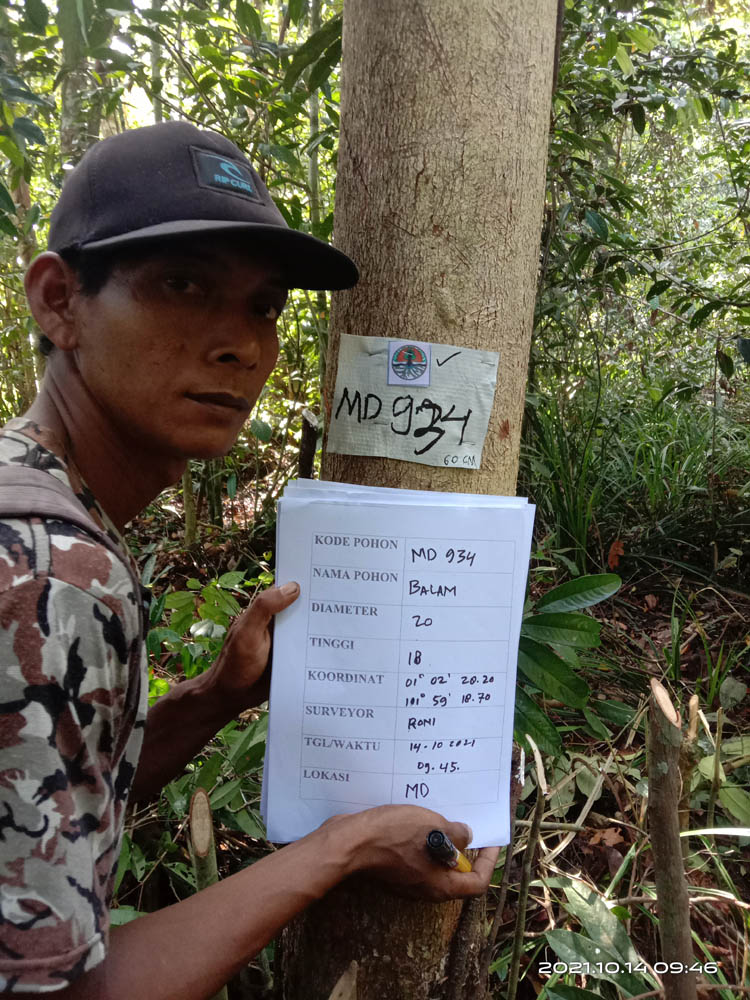 RIP CURL
MD 934
60 CM
KODE POHON MD 934
NAMA POHON BALAM
DIAMETER 20
TINGGI 18
KOORDINAT 01° 02' 28.20
101° 59' 18.70
SURVEYOR RONI
TGL/WAKTU 14-10-2021
09.45.
LOKASI MD
2021.10.14 09:46